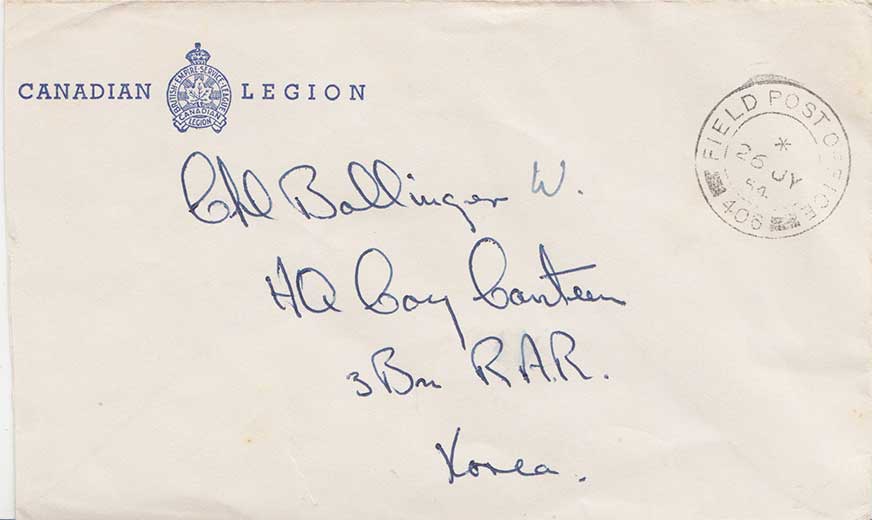 CANADIAN LEGION
BRITISH EMPIRE SERVICE LEAGUE
CANADIAN
LEGION
FIELD POST OFFICE
*
26 JY
54
406
Cpl Ballinger W.
HQ Coy Canteen
3 Bn R.A.R.
Korea.